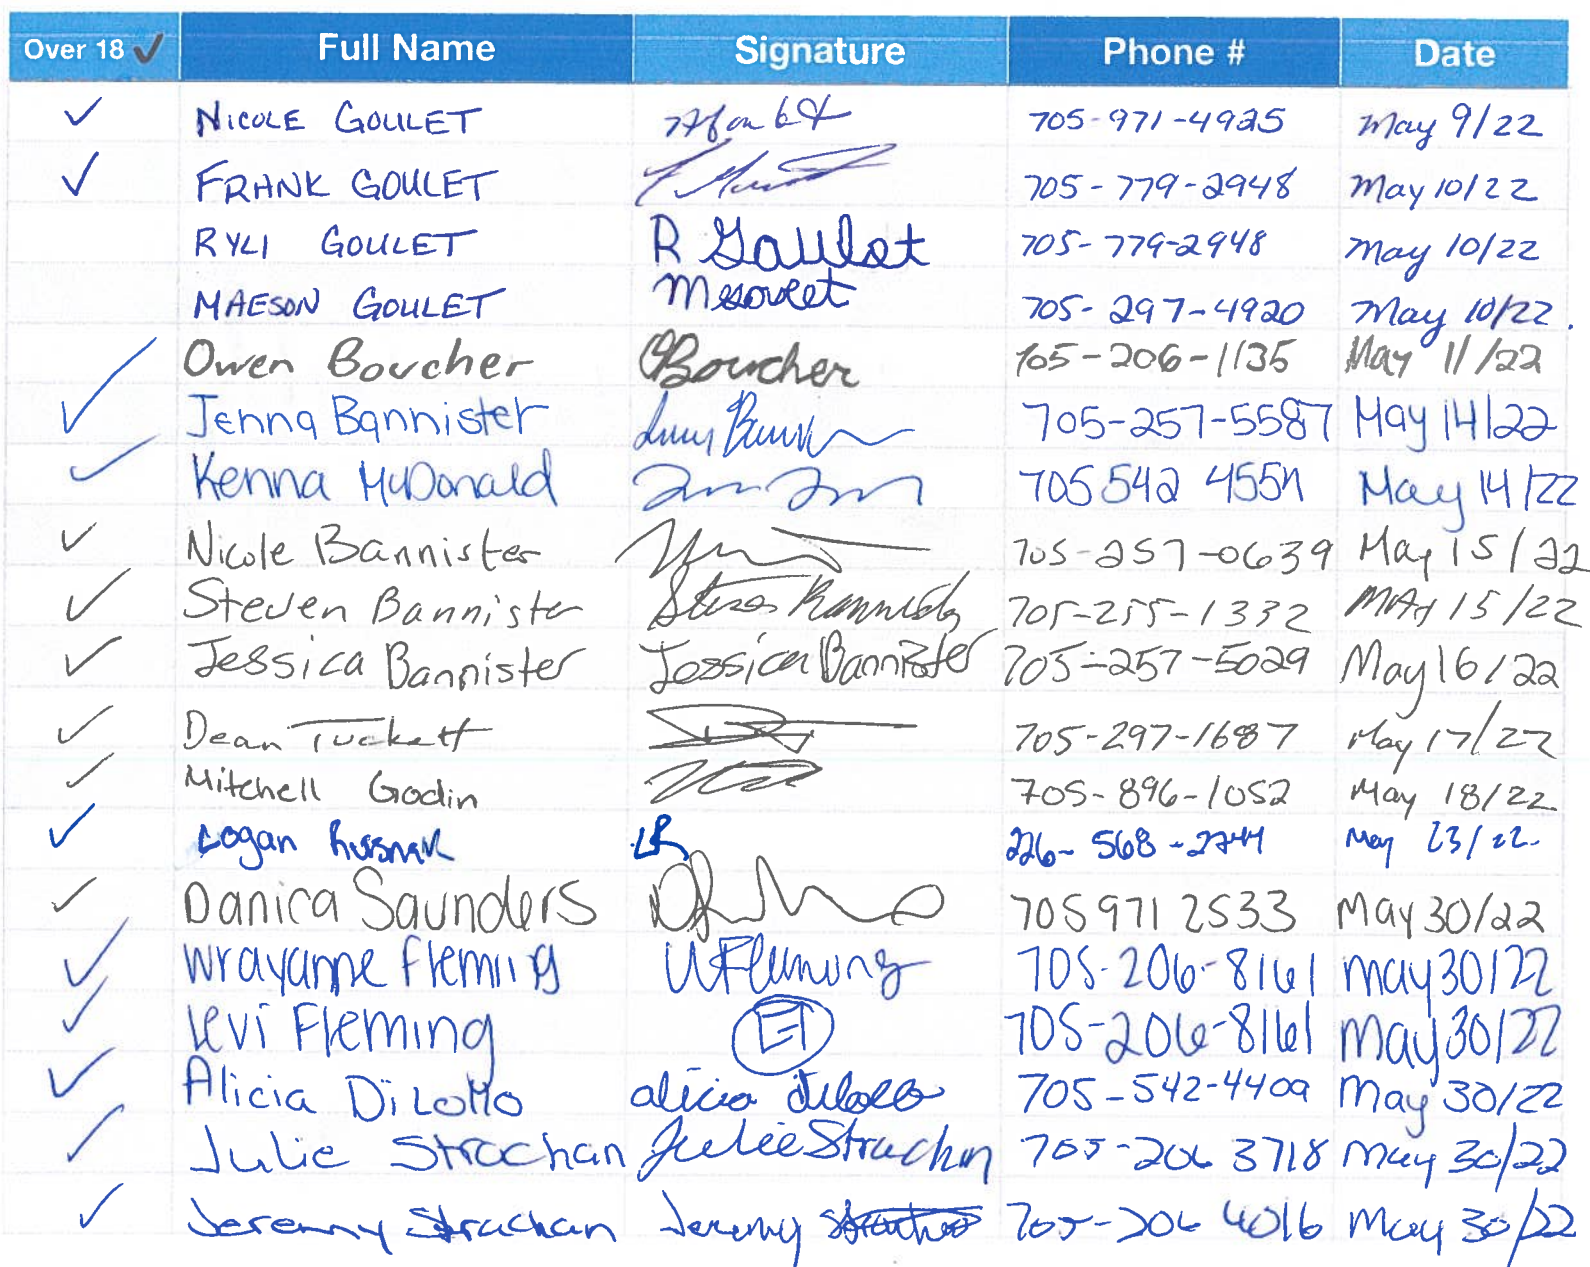 Over 18 ✓ Full Name Signature Phone # Date
✓ NICOLE GOULET 705-971-4925 May 9/22
✓ FRANK GOULET 705-779-2948 May 10/22
RYLI GOULET R Goulet 705-779-2948 May 10/22
MAESON GOULET 705-297-4920 May 10/22.
Owen Boucher OBoucher 705-206-1135 May 11/22
✓ Jenna Bannister 705-257-5587 May 14/22
✓ Kenna McDonald 705 542 4554 May 14/22
✓ Nicole Bannister 705-257-0639 May 15/22
✓ Steven Bannister Steven Bannister 705-255-1332 MAY 15/22
✓ Jessica Bannister Jessica Bannister 705-257-5029 May 16/22
✓ Dean Tuckett 705-297-1687 May 17/22
✓ Mitchell Godin 705-896-1052 May 18/22
✓ Logan Rusnak LR 226-568-2744 May 23/22
✓ Danica Saunders 705 971 2533 May 30/22
✓ Wrayanne Fleming WFleming 705-206-8161 May 30/22
✓ Levi Fleming 705-206-8161 May 30/22
✓ Alicia DiLollo alicia dilollo 705-542-4409 May 30/22
✓ Julie Strachan Julie Strachan 705-206 3718 May 30/22
✓ Jeremy Strachan Jeremy Strachan 705-206 4016 May 30/22